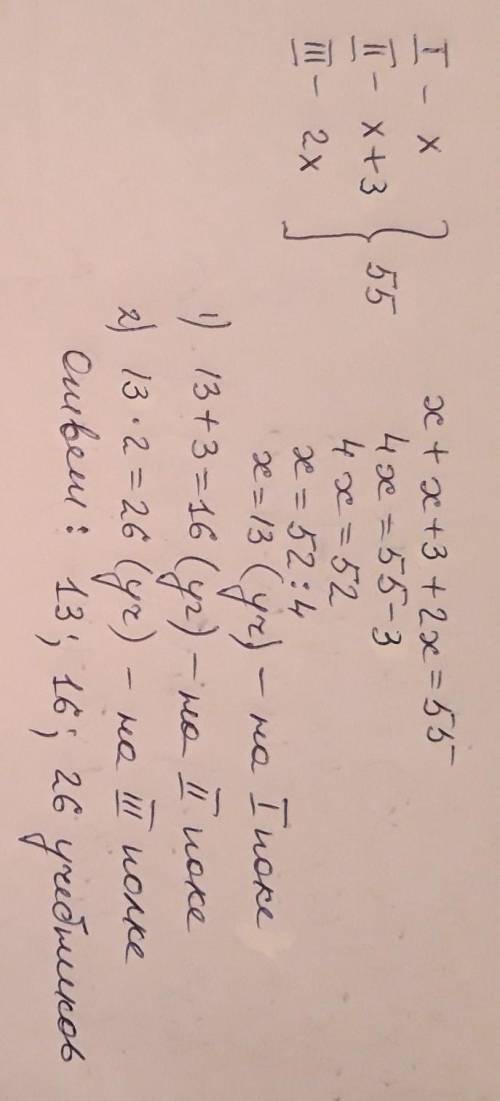 I - x
II - x + 3 } 55
III - 2x
x + x + 3 + 2x = 55
4x = 55 - 3
4x = 52
x = 52 : 4
x = 13 (уч) - на I поке
1) 13 + 3 = 16 (уч) - на II поке
2) 13 · 2 = 26 (уч) - на III полке
Ответ: 13; 16; 26 учебников